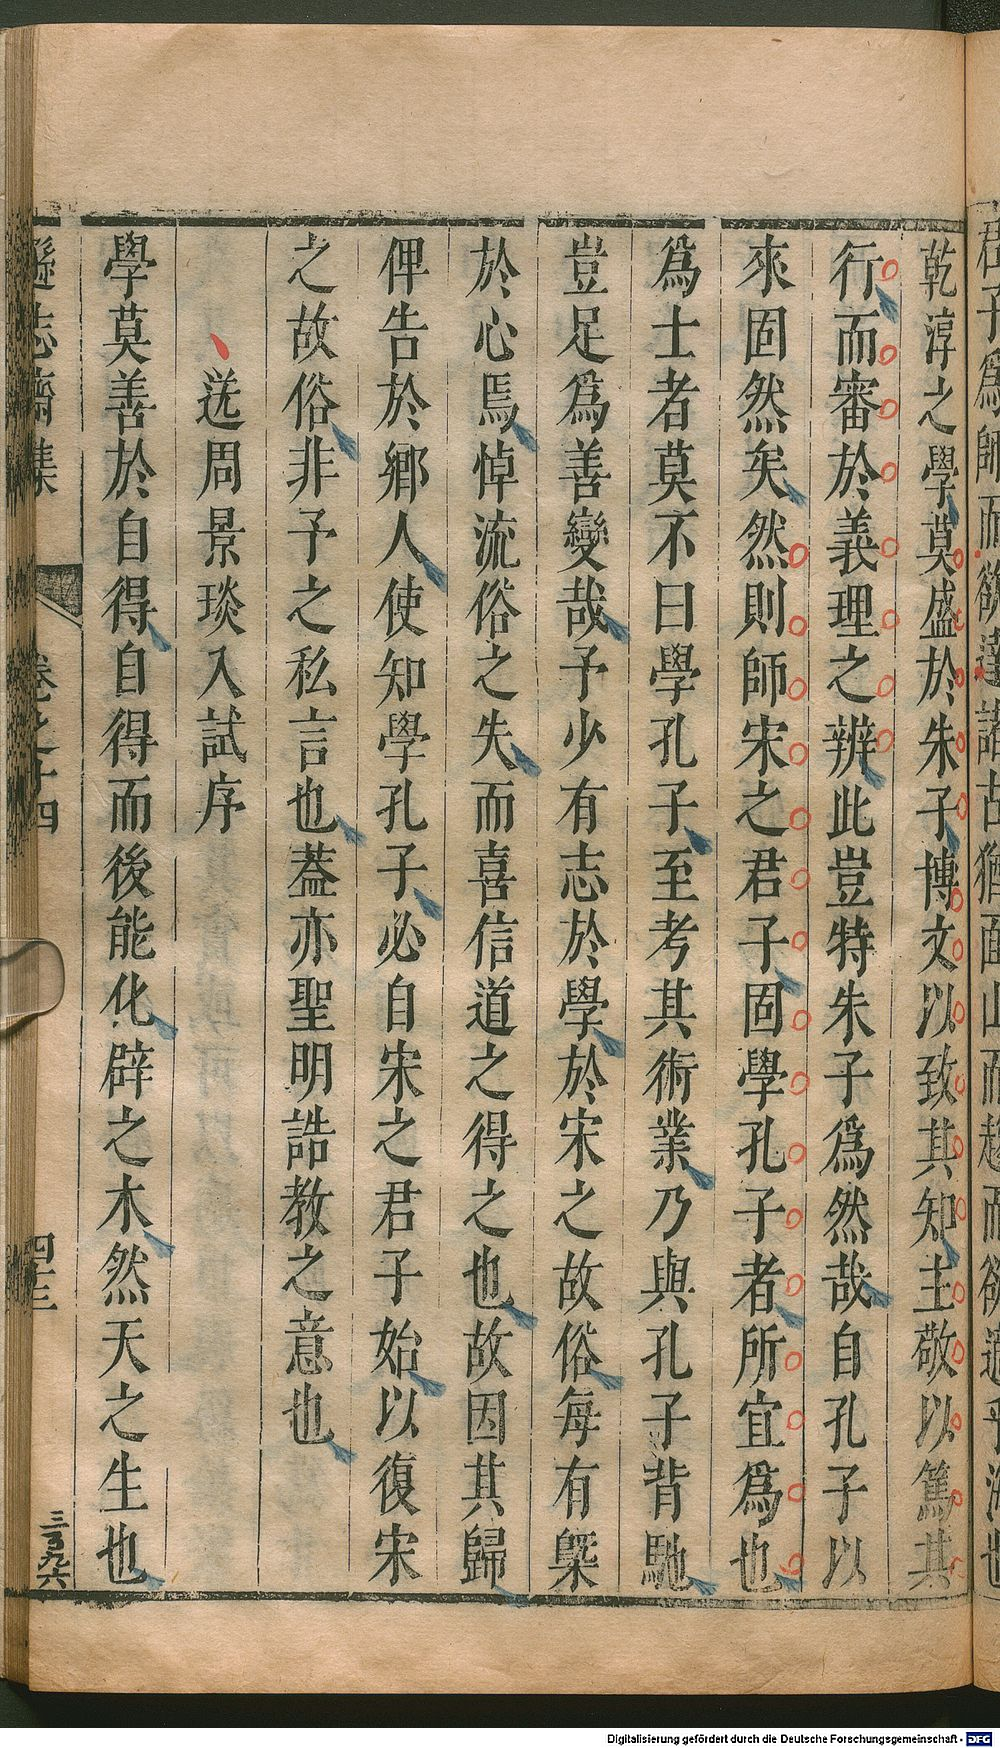 君子爲師而欲達諸古猶面山而趨而欲適乎海也
乾淳之學莫盛於朱子博文以致其知主敬以篤其
行而審於義理之辨此豈特朱子爲然哉自孔子以
來固然矣然則師宋之君子固學孔子者所宜爲也
爲士者莫不曰學孔子至考其術業乃與孔子背馳
豈足爲善變哉予少有志於學於宋之故俗每有槩
於心焉悼流俗之失而喜信道之得之也故因其歸
俾告於鄉人使知學孔子必自宋之君子始以復宋
之故俗非予之私言也葢亦聖明誥教之意也
送周景琰入試序
學莫善於自得自得而後能化辟之木然天之生也
遜志齋集
卷之十四
四十三
三百九六
Digitalisierung gefördert durch die Deutsche Forschungsgemeinschaft - DFG